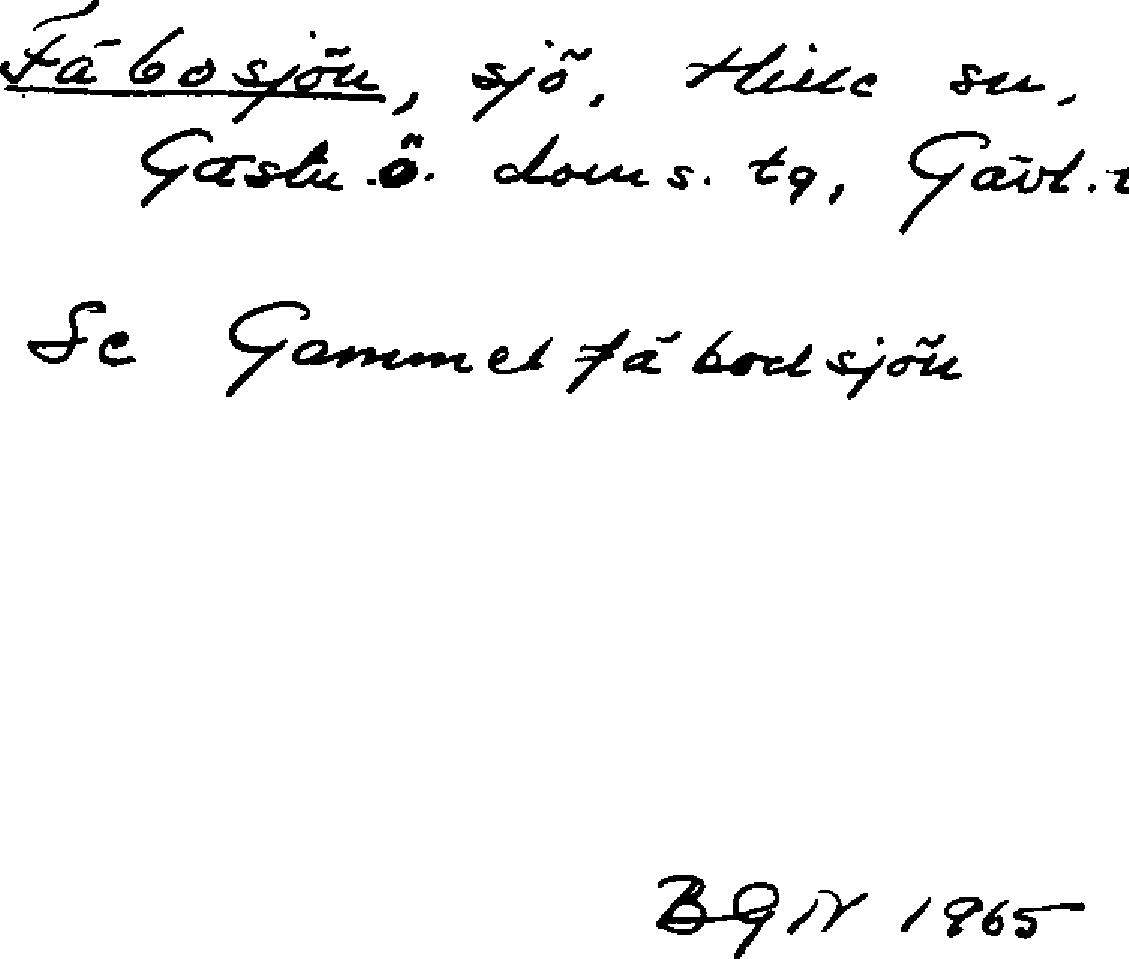 Fäbosjön, sjö, Hille sn,
Gästr.ö. doms. tg, Gävl.
Se Gammelfäbodsjön
1965